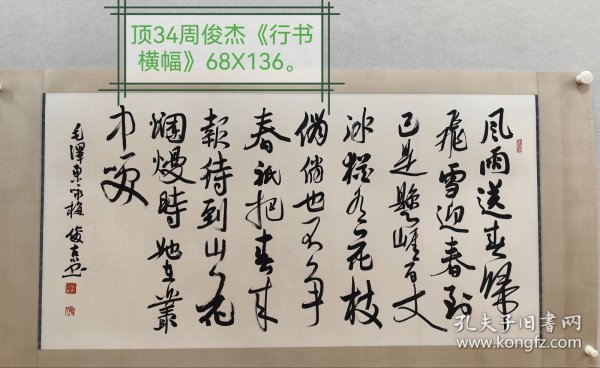 顶34周俊杰《行书
横幅》68X136。
風雨送春歸
飛雪迎春到
已是懸崖百丈
冰猶有花枝
俏俏也不爭
春祇把春來
報待到山花
爛熳時她在叢
中笑
毛澤東詠梅 俊杰書
孔夫子旧书网
www.kongfz.com